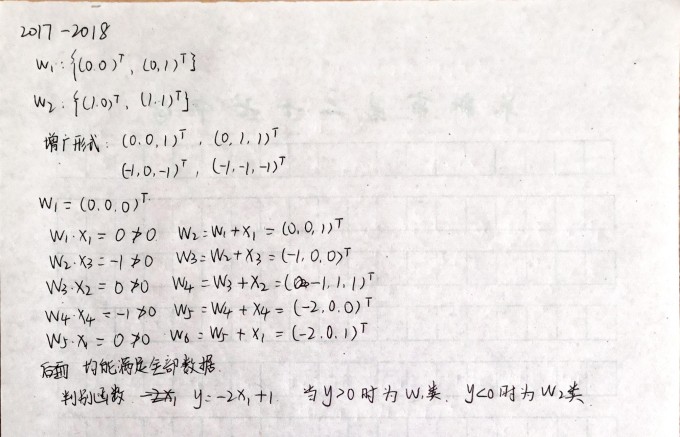 2017-2018
W₁:{(0.0)ᵀ, (0,1)ᵀ}
W₂:{(1.0)ᵀ, (1.1)ᵀ}
增广形式: (0.0,1)ᵀ, (0,1,1)ᵀ
(-1,0,-1)ᵀ, (-1,-1,-1)ᵀ
W₁=(0.0.0)ᵀ.
W₁·X₁=0≯0 W₂=W₁+X₁=(0,0,1)ᵀ
W₂·X₃=-1≯0 W₃=W₂+X₃=(-1,0,0)ᵀ
W₃·X₂=0≯0 W₄=W₃+X₂=(-1,1,1)ᵀ
W₄·X₄=-1≯0 W₅=W₄+X₄=(-2,0.0)ᵀ
W₅·X₁=0≯0 W₆=W₅+X₁=(-2.0.1)ᵀ
后面 均能满足全部数据.
判别函数 -2X₁ y=-2X₁+1. 当y>0时为W₁类. y<0时为W₂类.